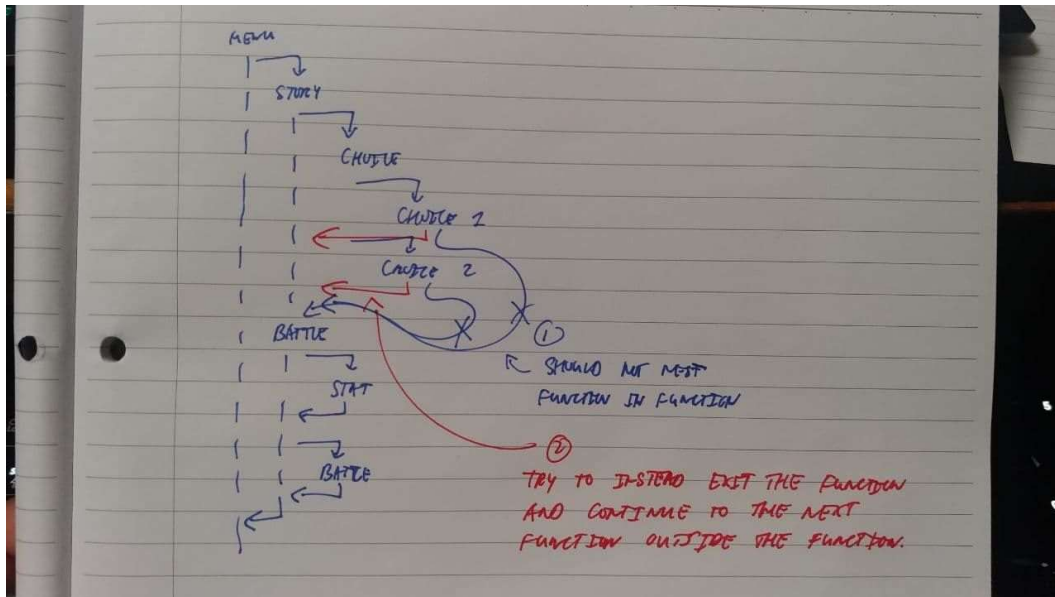 MENU
STORY
CHOICE
CHOICE 1
CHOICE 2
BATTLE
1
SHOULD NOT NEST
FUNCTION IN FUNCTION
STAT
BATTLE
2
TRY TO INSTEAD EXIT THE FUNCTION
AND CONTINUE TO THE NEXT
FUNCTION OUTSIDE THE FUNCTION.